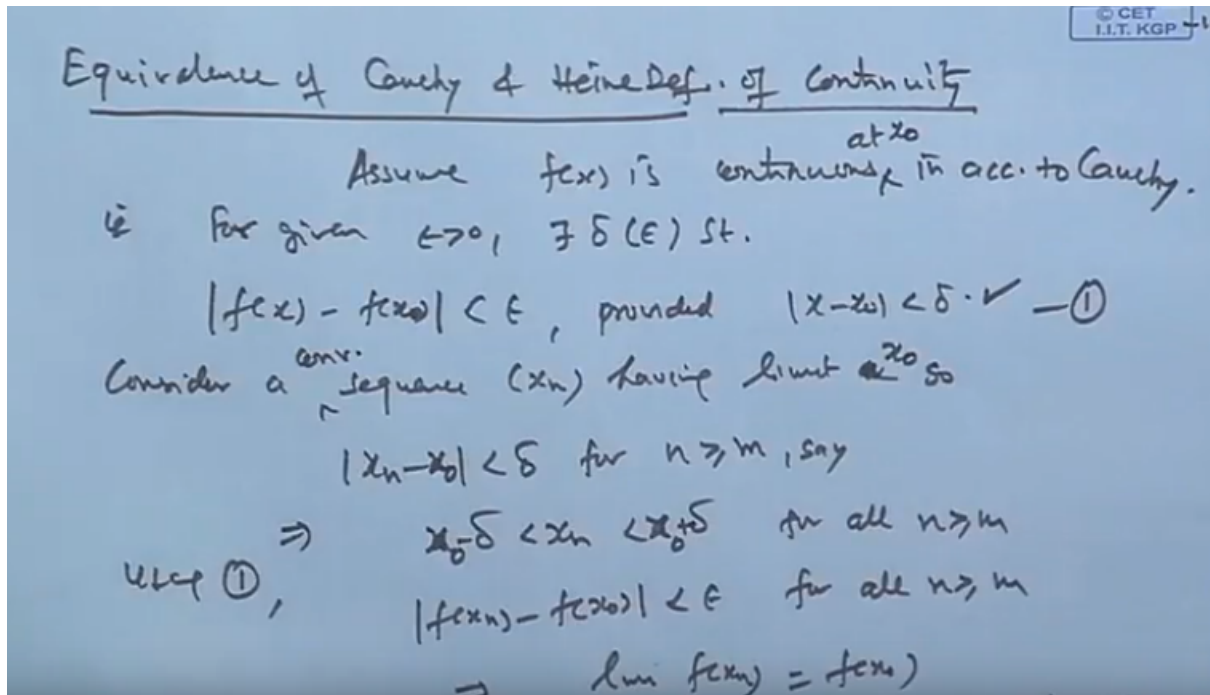 © CET
I.I.T. KGP
Equivalence of Cauchy & Heine Def. of Continuity
at x0
Assume f(x) is continuous in acc. to Cauchy.
ie For given ε>0, ∃ δ(ε) st.
|f(x) - f(x0)| < ε, provided |x-x0| < δ. ✓ —①
Consider a conv. sequence (xn) having limit x0 so
|xn-x0| < δ for n ≥ m, say
⇒ x0-δ < xn < x0+δ for all n ≥ m
Use ①,
|f(xn) - f(x0)| < ε for all n ≥ m
⇒ lim f(xn) = f(x0)